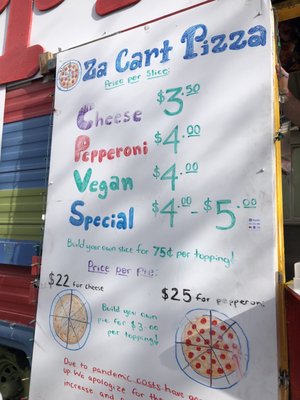 Za Cart Pizza
Price per Slice:
Cheese $3.50
Pepperoni $4.00
Vegan $4.00
Special $4.00-$5.00
Build your own slice for 75¢ per topping!
Price per pie:
$22 for cheese
$25 for pepperoni
Build your own
pie for $3.00
per topping!
Due to pandemic costs have
up. We apologize for the
increase and